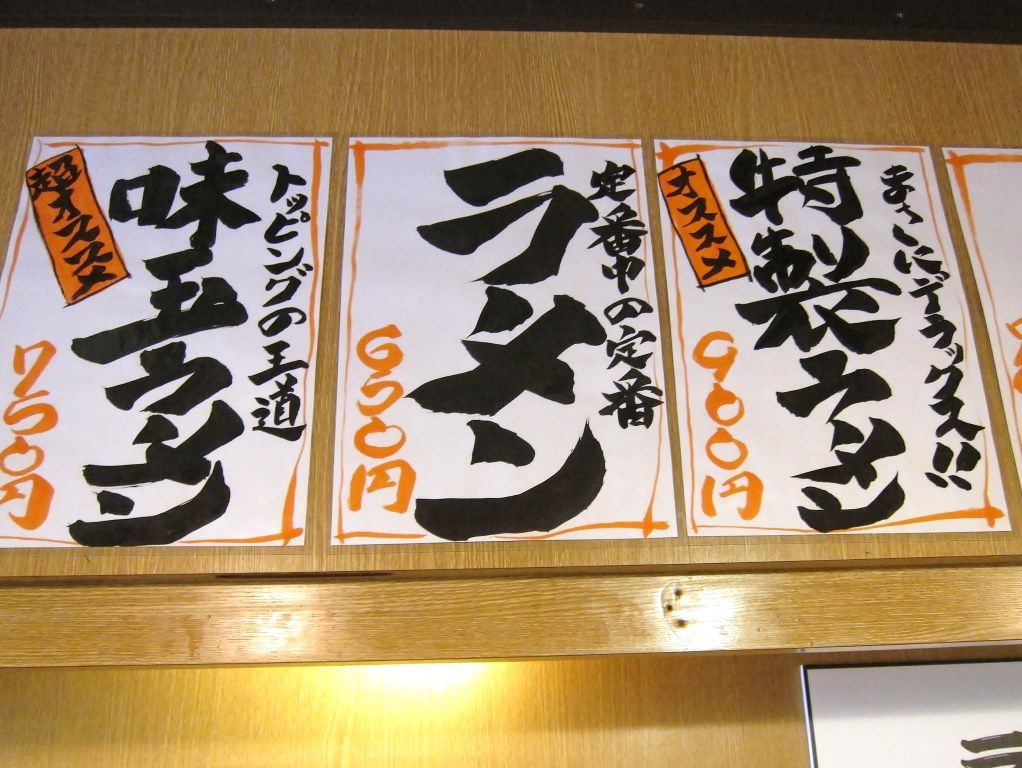 まさにデラックス!!
特製ラーメン
オススメ
900円
定番中の定番
ラーメン
650円
トッピングの王道
味玉ラーメン
超オススメ
750円